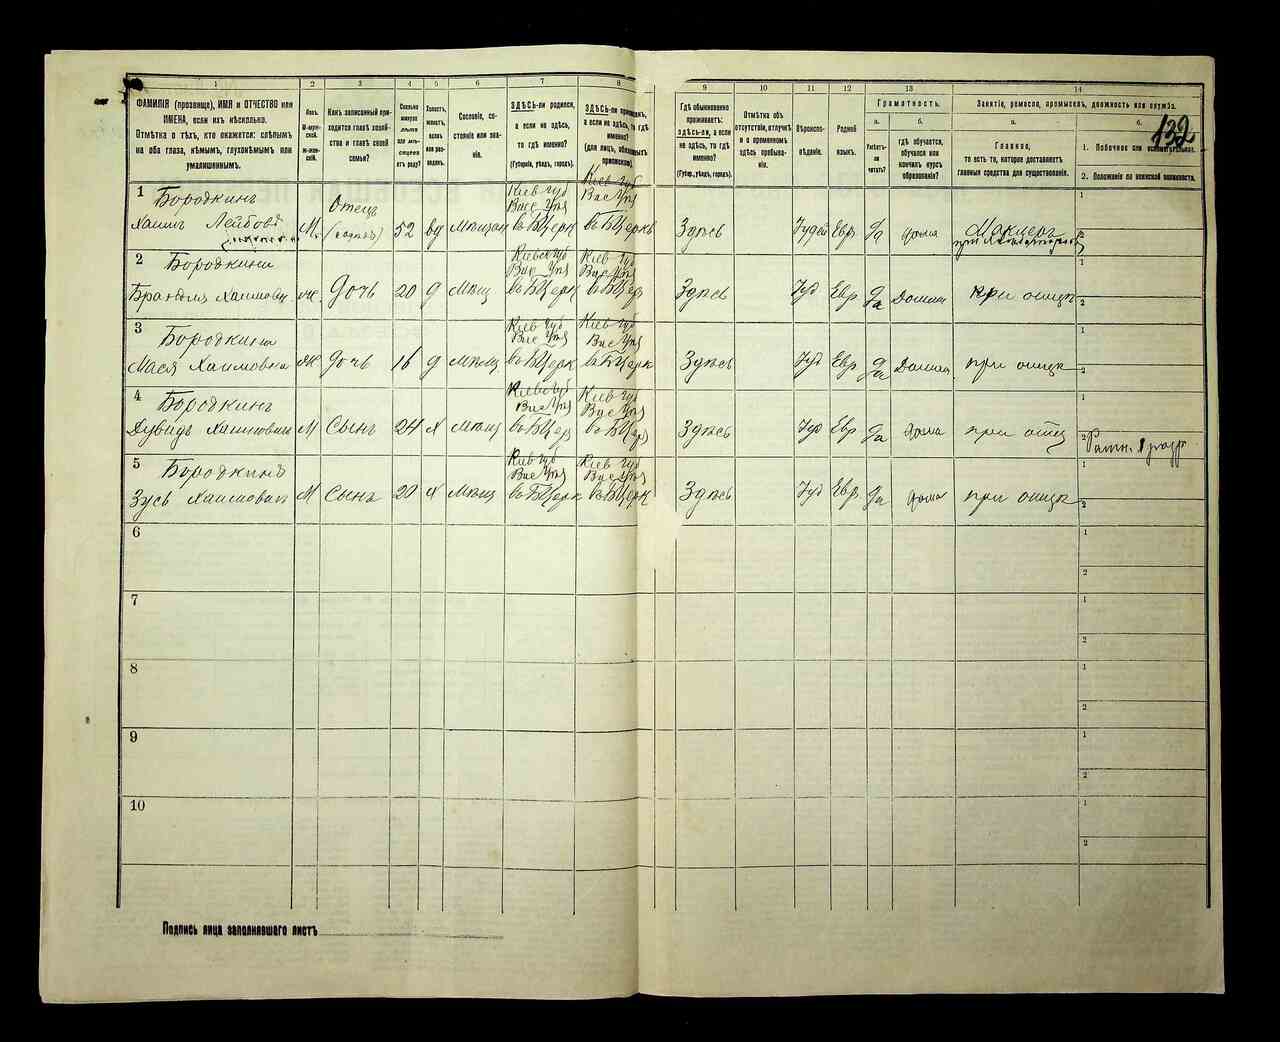 132
1
2
3
4
5
6
7
8
9
10
11
12
13
14
ФАМИЛІЯ (прозвище), ИМЯ и ОТЧЕСТВО или
ИМЕНА, если ихъ нѣсколько.
Отмѣтка о тѣхъ, кто окажется: слѣпымъ
на оба глаза, нѣмымъ, глухонѣмымъ или
умалишеннымъ.
Полъ.
М-мужской.
Ж-женскій.
Какъ записанный приходится
главѣ хозяйства
и главѣ своей
семьи?
Сколько
минуло
лѣтъ
или мѣсяцевъ
отъ роду?
Холостъ,
женатъ,
вдовъ
или разведенъ.
Сословіе, состояніе
или званіе.
ЗДѢСЬ-ли родился,
а если не здѣсь,
то гдѣ именно?
(Губернія, уѣздъ, городъ).
ЗДѢСЬ-ли приписанъ,
а если не здѣсь, то гдѣ
именно?
(для лицъ, обязанныхъ
припискою).
Гдѣ обыкновенно
проживаетъ:
здѣсь-ли, а если
не здѣсь, то гдѣ
именно?
(Губер., уѣздъ, городъ).
Отмѣтка объ
отсутствіи, отлучкѣ
и о временномъ
здѣсь пребываніи.
Вѣроисповѣданіе.
Родной
языкъ.
Грамотность.
а.
Умѣетъ-ли
читать?
б.
гдѣ обучается,
обучался или
кончилъ курсъ
образованія?
Занятіе, ремесло, промыселъ, должность или служба.
а.
Главное,
то есть то, которое доставляетъ
главныя средства для существованія.
б.
1. Побочное или вспомогательное.
2. Положеніе по воинской повинности.
1 Бородкинъ
Хаимъ Лейбовъ
М. Отецъ 52 вд мѣщан
Кіев губ Вас Уѣз в Б Церк
Кіев губ Вас Уѣз в Б Церкв
Здѣсь Іудей Евр Да дома Маклеръ
2 Бородкина
Хаимовн Ж. Дочь 20 д мѣщ
Кіевск губ Вас Уѣз в Б Церк
Кіев губ Вас Уѣз в Б Церк
Здѣсь Іуд Евр Да Дома при отцѣ
3 Бородкина
Мася Хаимовна Ж Дочь 16 д мѣщ
Кіев губ Вас Уѣз в Б Церк
Кіев губ Вас Уѣз в Б Церк
Здѣсь Іуд Евр Да Дома при отцѣ
4 Бородкинъ
Дувидъ Хаимовичъ М Сынъ 24 х мѣщ
Кіев губ Вас Уѣз в Б Цер
Кіев губ Вас Уѣз в Б Цер
Здѣсь Іуд Евр Да дома при отц
2 Ратн. 1 разр
5 Бородкинъ
Зусь Хаимович М Сынъ 20 х мѣщ
Кіев губ Вас Уѣз в Б Церк
Кіев губ Вас Уѣз в Б Церк
Здѣсь Іуд Евр Да дома при отцѣ
6
7
8
9
10
Подпись лица заполнявшаго листъ